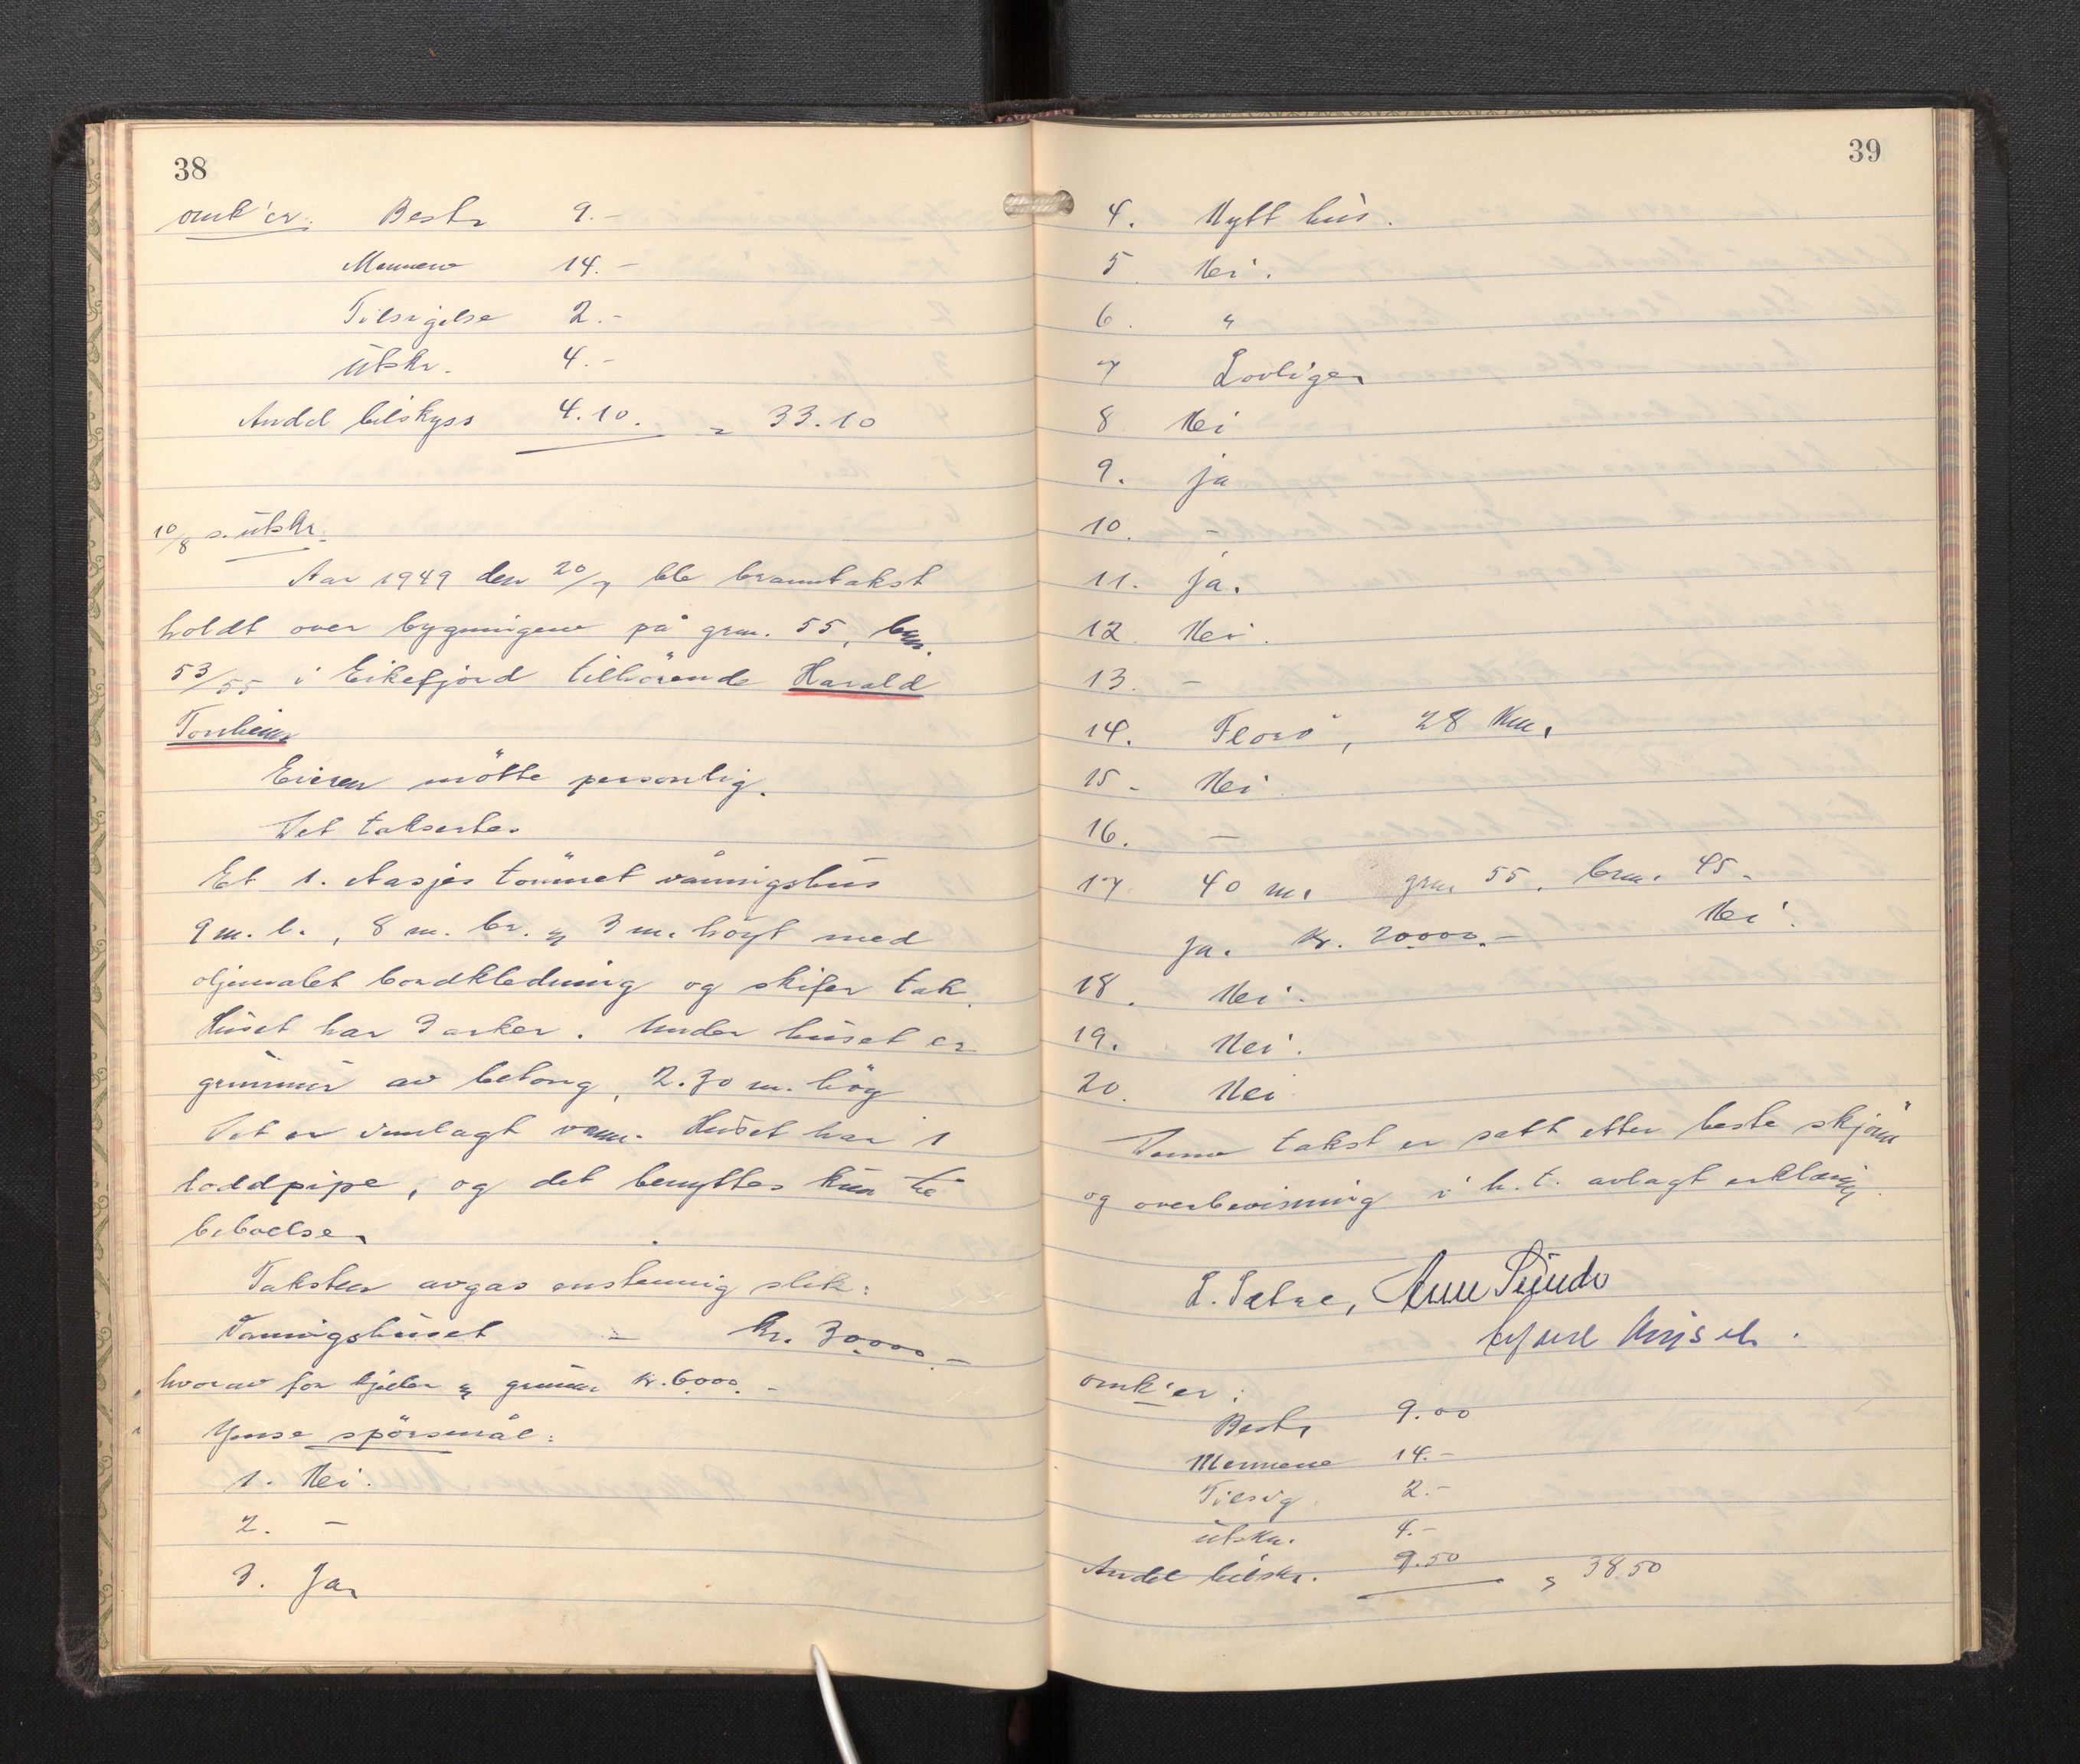 38
omk'er: Bestr 9.-
Mennene 14.-
Tilsigelse 2.-
Utskr. 4.-
Andel bilskyss 4.10. = 33.10
10/8 s. utskr.
Aar 1949 den 20/7 ble branntakst
holdt over bygningene på grn. 55, brn.
53/55 i Eikefjord tilhörende Harald
Tonheim
Eieren mötte personlig.
Det taksertes
Et 1. etasjes tömret våningshus
9 m. l., 8 m. br. og 3 m. höyt med
oljemalet bordkledning og skifer tak.
Huset har 3 arker. Under huset er
grunmur av betong, 2.30 m. hög
Det er innlagt vann. Huset har 1
loddpipe, og det benyttes kun til
beboelse.
Taksten avgas enstemmig slik:
Vaningshuset - kr. 30000.-
hvorav for kjeller og grunmur kr. 6000.-
Ymse spörsmål:
1. Nei.
2. -
3. Ja.
39
4. Nytt hus.
5 Nei.
6. "
7 Lovlige.
8 Nei
9. ja
10. -
11. ja.
12. Nei.
13. -
14. Florö, 28 km.
15. Nei
16. -
17 40 m. grn. 55, brn. 45.
ja. kr. 20000.- Nei.
18. Nei.
19. Nei.
20. Nei
Denne takst er satt etter beste skjönn
og overbevisning i h.t. avlagt erklæring.
L. Sætre,
omk'er:
Bestr 9.00
Mennene 14.-
Tilsig 2.-
utskr. 4.-
Andel bilskr. 9.50 = 38.50